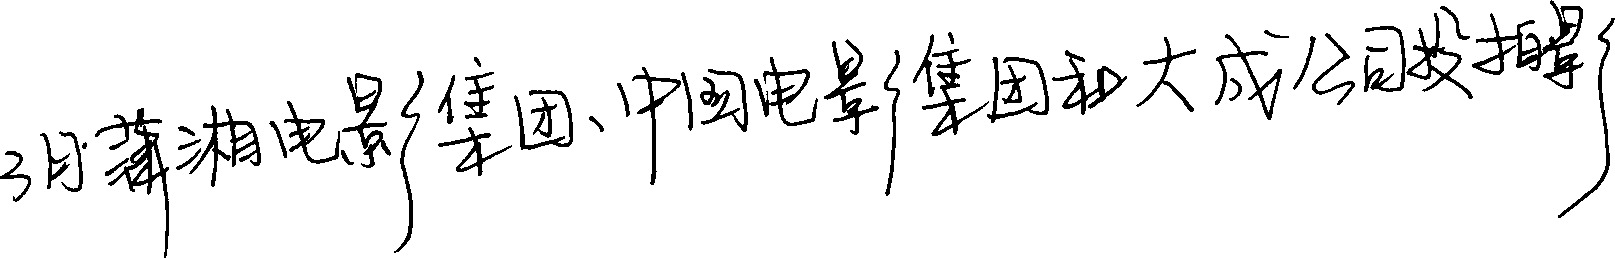 3月潇湘电影集团、中国电影集团和大成公司投拍影